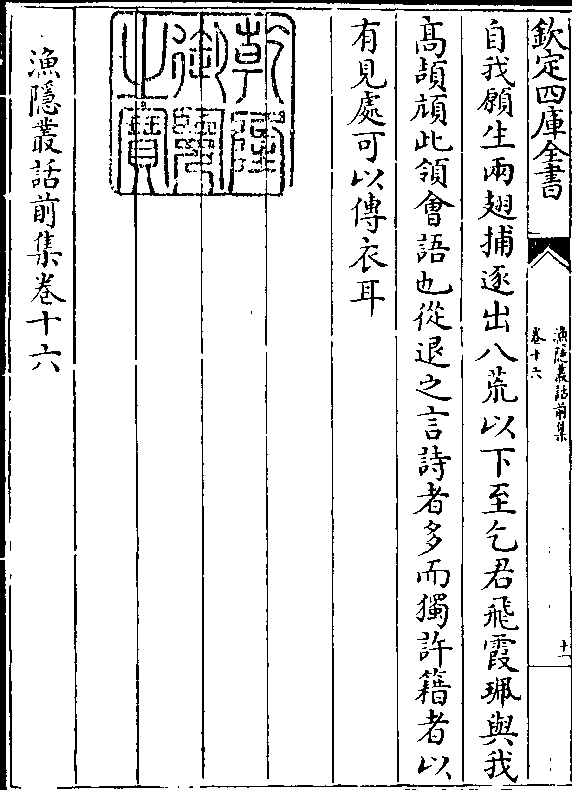 欽定四庫全書
漁隱叢話前集
卷十六
十一
自我願生兩翅捕逐出八荒以下至乞君飛霞珮與我
高頡頏此領會語也從退之言詩者多而獨許籍者以
有見處可以傳衣耳
乾隆御覽之寶
漁隱叢話前集卷十六